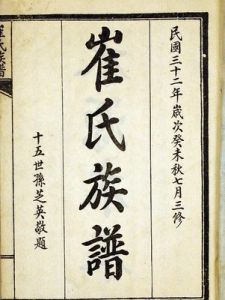 民國三十二年歲次癸未秋七月三修
崔氏族譜
十五世孫芝英敬題
崔氏族譜